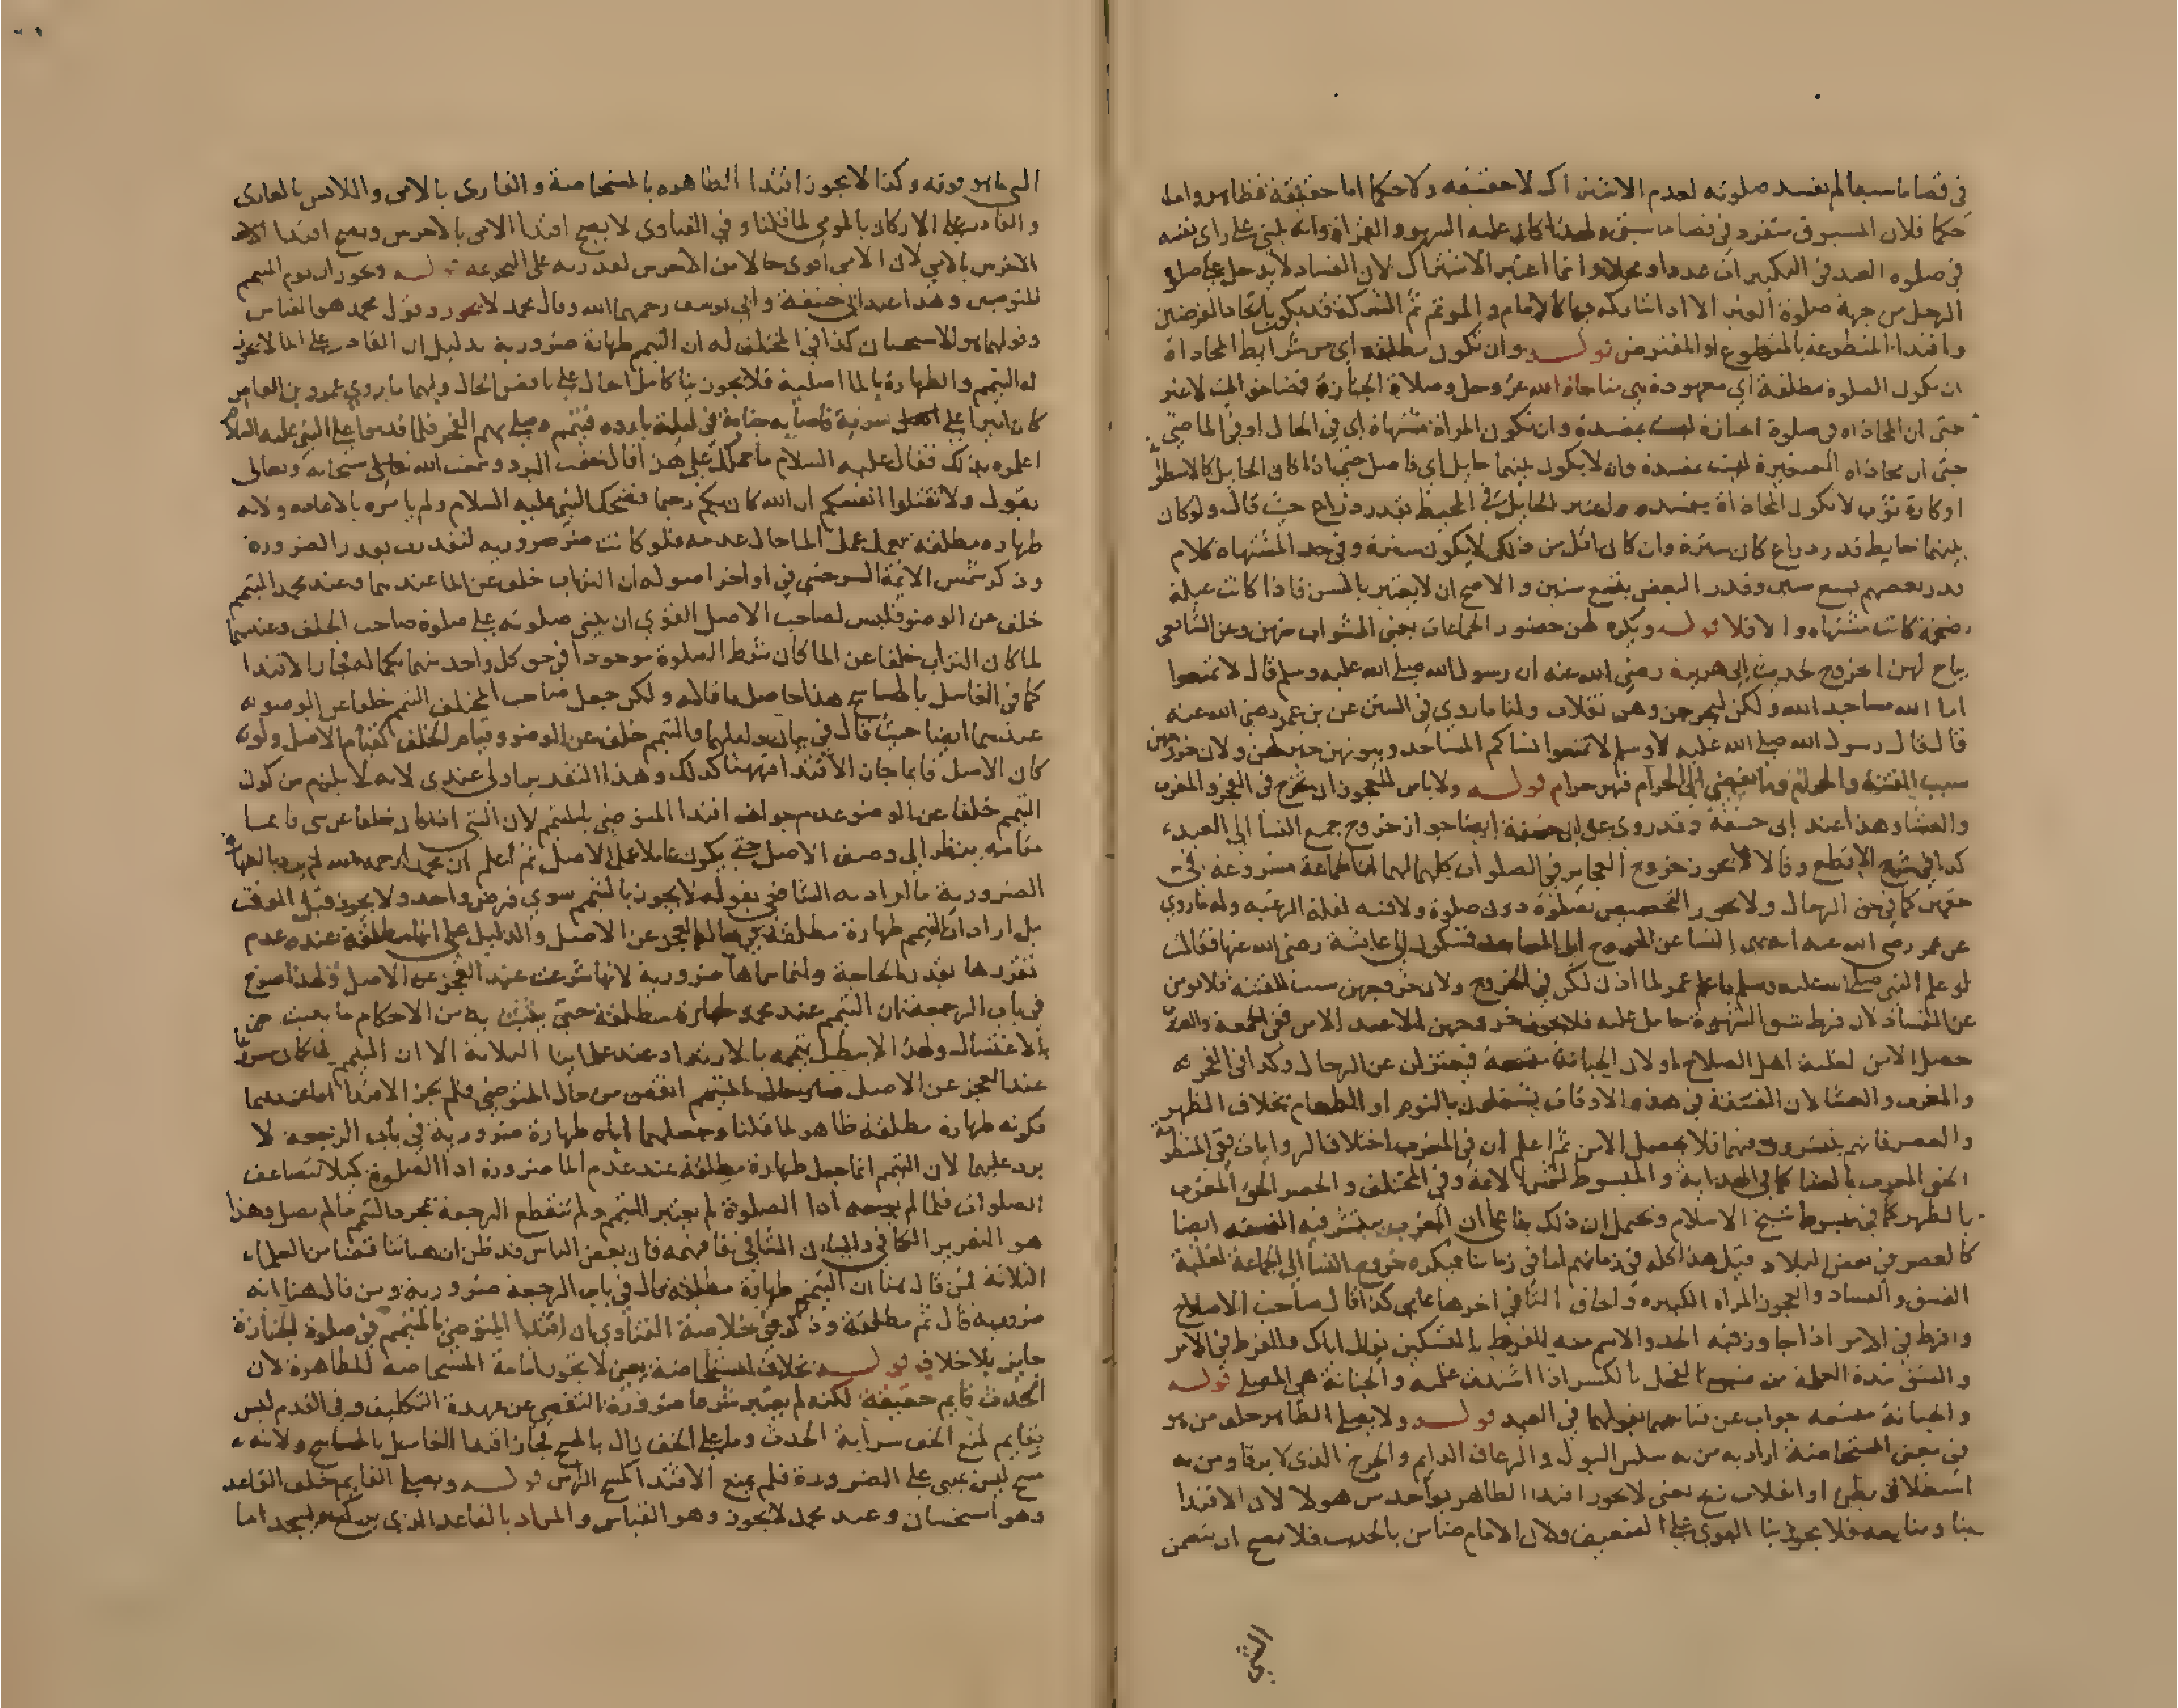 في قضا ما سبقا لم تفسد صلوته لعدم الاشتراك لا حقيقة ولا حكما اما حقيقة فظاهر واما
حكما فلان المسبوق منفرد في قضا ما سبق ولهذا كان عليه السهو والقراة وانه يبني على راي نفسه
في صلوة العيد في التكبيرات عددا ومحلا وانما اعتبر الاشتراك لان الفساد لا يدخل على صلوة
الرجل من جهة صلوة الغير الا اذا شاركه فيها كالامام والموتم ثم الشركة قد يكون باتحاد الفرضين
وباقتدا المتطوعة بالمتطوع او المفترض قولــه وان تكون مطلقة اي من شرايط المحاذاة
ان تكون الصلوة مطلقة اي معهودة هي مناجاة الله عز وجل وصلاة الجنازة قضا حق الميت لا غير
حتى ان المحاذاة في صلوة الجنازة ليست بمفسدة وان تكون المراة مشتهاة اي في الحال او في الماضي
حتى ان محاذاة الصغيرة ليست بمفسدة وان لا يكون بينهما حايل اي فاصل حتى اذا كان الحايل كالاسطوانة
او كارة ثوب لا تكون المحاذاة بمفسدة ويعتبر الحايل في المحيط بقدر ذراع حيث قال ولو كان
بينهما حايط قدر ذراع كان سترة وان كان اقل من ذلك لا يكون سترة وفي حد المشتهاة كلام
قدر بعضهم بسبع سنين وقدر البعض بتسع سنين والاصح ان لا يعتبر بالسن فاذا كانت عبلة
ضخمة كانت مشتهاة والا فلا قولــه ويكره لهن حضور الجماعات يعني الشواب منهن وعن الشافعي
يباح لهن الخروج لحديث ابي هريرة رضي الله عنه ان رسول الله صلى الله عليه وسلم قال لا تمنعوا
اما الله مساجد الله ولكن ليخرجن وهن تفلات ولنا ما روي في السنن عن بن عمر رضي الله عنه
قال قال رسول الله صلى الله عليه وسلم لا تمنعوا نساكم المساجد وبيوتهن خير لهن ولان خروجهن
سبب الفتنة والحرام وما يفضي الى الحرام فهو حرام قولــه ولا باس للعجوز ان تخرج في الفجر والمغرب
والعشا وهذا عند ابي حنيفة وقد روي عن ابي حنيفة ايضا جواز خروج جميع النسا الى العيد
كذا في شرح الاقطع وقالا يجوز خروج العجايز في الصلوات كلها لهما ان الجماعة مشروعة في
حقهن كما في حق الرجال ولا يجوز التخصيص بصلوة دون صلوة ولا فتنة لقلة الرغبة وله ما روي
عن عمر رضي الله عنه انه نهى النسا عن الخروج الى المساجد فشكون الى عايشة رضي الله عنها فقالت
لو علم النبي صلى الله عليه وسلم ما علم عمر لما اذن لكن في الخروج ولان خروجهن سبب للفتنة فلا يومن
عن الفساد لان فرط شبق الشهوة حامل عليه فلا يجوز خروجهن الا عند الامن ففي الجمعة والعيد
حصل الامن لغلبة اهل الصلاح او لان الجبانة متسعة فيعتزلن عن الرجال وكذا في الفجر
والمغرب والعشا لان الفسقة في هذه الاوقات يشتغلون بالنوم او الطعام بخلاف الظهر
والعصر فانهم ينتشرون فيهما فلا يحصل الامن ثم اعلم ان في المغرب اختلاف الروايات ففي المنظومة
الحق المغرب بالعشا كما في الهداية والمبسوط لشمس الائمة وفي المختلف والحصر الحق المغرب
بالظهر كما في مبسوط شيخ الاسلام ويحمل ان ذلك بنا على ان المغرب ينتشر فيه الفسقة ايضا
كالعصر في بعض البلاد قيل هذا كله في زمانهم اما في زماننا فيكره خروج النسا الى الجماعة لغلبة
الفسق والفساد والعجوز المراة الكبيرة والحاق التا في اخرها عامي كذا قال صاحب الاصلاح
وافرط في الامر اذا جاوز فيه الحد والاسم منه الفرط بالتسكين يقال اياك والفرط في الامر
والشبق شدة الغلمة من شبق الفحل بالكسر اذا اشتدت غلمته والجبانة هي المصلى قولــه
والجبانة متسعة جواب عن قياسهما بقولهما في العيد قولــه ولا يصلي الطاهر خلف من هو
في معنى المستحاضة اراد به من به سلس البول والرعاف الدايم والجرح الذي لا يرقا ومن به
استطلاق بطن او انفلات ريح يعني لا يجوز اقتدا الطاهر بواحد من هولا لان الاقتدا
بنا ومتابعة فلا يجوز بنا القوي على الضعيف ولان الامام ضامن بالحديث فلا يصح ان يتضمن
الشي
الشي ما هو فوقه وكذا لا يجوز اقتدا الطاهرة بالمستحاضة والقاري بالامي واللابس بالعاري
والقادر على الاركان بالمومي لما قلنا وفي الفتاوى لا يصح اقتدا الامي بالاخرس ويصح اقتدا
الاخرس بالامي لان الامي اقوى حالا من الاخرس لقدرته على التحريمة قولــه ويجوز ان يوم المتيمم
المتوضين وهذا عند ابي حنيفة وابي يوسف رحمهما الله وقال محمد لا يجوز وقول محمد هو القياس
وقولهما هو الاستحسان كذا في المختلف له ان التيمم طهارة ضرورية بدليل ان القادر على الما لا يجوز
له التيمم والطهارة بالما اصلية فلا يجوز بنا كامل الحال على ناقص الحال ولهما ما روي عمرو بن العاص
كان اميرا على سرية فاصابه جنابة في ليلة باردة فتيمم وصلى بهم الفجر فلما قدموا على النبي عليه السلام
اعلموه بذلك فقال عليه السلام ما حملك على هذا قال خفت البرد وسمعت الله سبحانه وتعالى
يقول ولا تقتلوا انفسكم ان الله كان بكم رحيما فضحك النبي عليه السلام ولم يامره بالاعادة ولانه
طهارة مطلقة يعمل عمل الما حال عدمه فلو كانت ضرورية لتقدرت بقدر الضرورة
وذكر شمس الائمة السرخسي في اواخر اصوله ان التراب خلف عن الما عندهما وعند محمد التيمم
خلف عن الوضو فليس لصاحب الاصل القوي ان يبني صلوته على صلوة صاحب الخلف وعندهما
لما كان التراب خلفا عن الما كان شرط الصلوة موجودا في حق كل واحد منهما بكماله فجاز الاقتدا
كما في الغاسل بالماسح هذا حاصل ما قاله ولكن جعل صاحب المختلف التيمم خلفا عن الوضو
عندهما ايضا حيث قال في بيان دليلهما والتيمم خلف عن الوضو وقيام الخلف كقيام الاصل ولو
كان الاصل قايما جاز الاقتدا فههنا كذلك وهذا التقدير اولى عندي لانه لا يلزم من كون
التيمم خلفا عن الوضو عدم جواز اقتدا المتوضي بالمتيمم لان الشي اذا كان خلفا عن شي قايما
مقامه ينظر الى وصف الاصل حتى يكون عاملا عمل الاصل ثم اعلم ان محمدا رحمه الله لم يرد بالطهارة
الضرورية ما اراد به الشافعي بقوله لا يجوز بالتيمم سوى فرض واحد ولا يجوز قبل الوقت
بل اراد ان التيمم طهارة مطلقة في حالة العجز عن الاصل والدليل على انها مطلقة عنده عدم
تقدرها بقدر الحاجة وانما سماها ضرورية لانها شرعت عند العجز عن الاصل ولهذا صرح
في باب الرجعة ان التيمم عند محمد طهارة مطلقة حتى يثبت به من الاحكام ما يثبت
بالاغتسال ولهذا لا يبطل تيممه بالارتداد عند علماينا الثلاثة الا ان التيمم لما كان مشروعا
عند العجز عن الاصل صار حال المتيمم انقص من حال المتوضي فلم يجز الاقتدا اما عندهما
فكونه طهارة مطلقة ظاهر لما قلنا وجعلهما اياه طهارة ضرورية في باب الرجعة لا
يرد عليهما لان التيمم انما جعل طهارة مطلقة عند عدم الما ضرورة ادا الصلوة كيلا تتضاعف
الصلوات فلما لم يوجد ادا الصلوة لم يعتبر التيمم ولم تنقطع الرجعة بمجرد التيمم ما لم يصل وهذا
هو التقرير الكافي والبيان الشافي فافهمه فان بعض الناس قد ظن ان ههنا تناقضا من العلماء
الثلاثة لمن قال هنا ان التيمم طهارة مطلقة قال في باب الرجعة ضرورية ومن قال هنا انه
ضرورية قال ثم مطلقة وذكر في خلاصة الفتاوي ان اقتدا المتوضي بالمتيمم في صلوة الجنازة
جايز بلا خلاف قولــه بخلاف المستحاضة يعني لا يجوز امامة المستحاضة للطاهرة لان
الحدث قايم حقيقة لكنه لم يعتبر شرعا ضرورة التفصي عن عهدة التكليف وفي القدم ليس
بقايم لمنع الخف سراية الحدث وما على الخف زال بالمسح فجاز اقتدا الغاسل بالماسح ولانه
مسح ليس يبنى على الضرورة فلم يمنع الاقتدا كمسح الراس قولــه ويصلي القايم خلف القاعد
وهو استحسان وعند محمد لا يجوز وهو القياس والمراد بالقاعد الذي يركع ويسجد اما